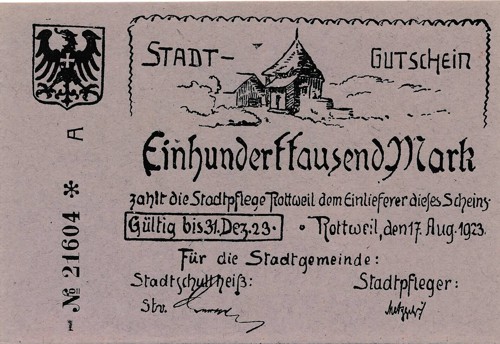 STADT- GUTSCHEIN
Einhunderttausend Mark
zahlt die Stadtpflege Rottweil dem Einlieferer dieses Scheins
Gültig bis 31. Dez. 23. • Rottweil, den 17. Aug. 1923.
Für die Stadtgemeinde:
Stadtschultheiß: Stadtpfleger:
Stv.
A
№ 21604 *